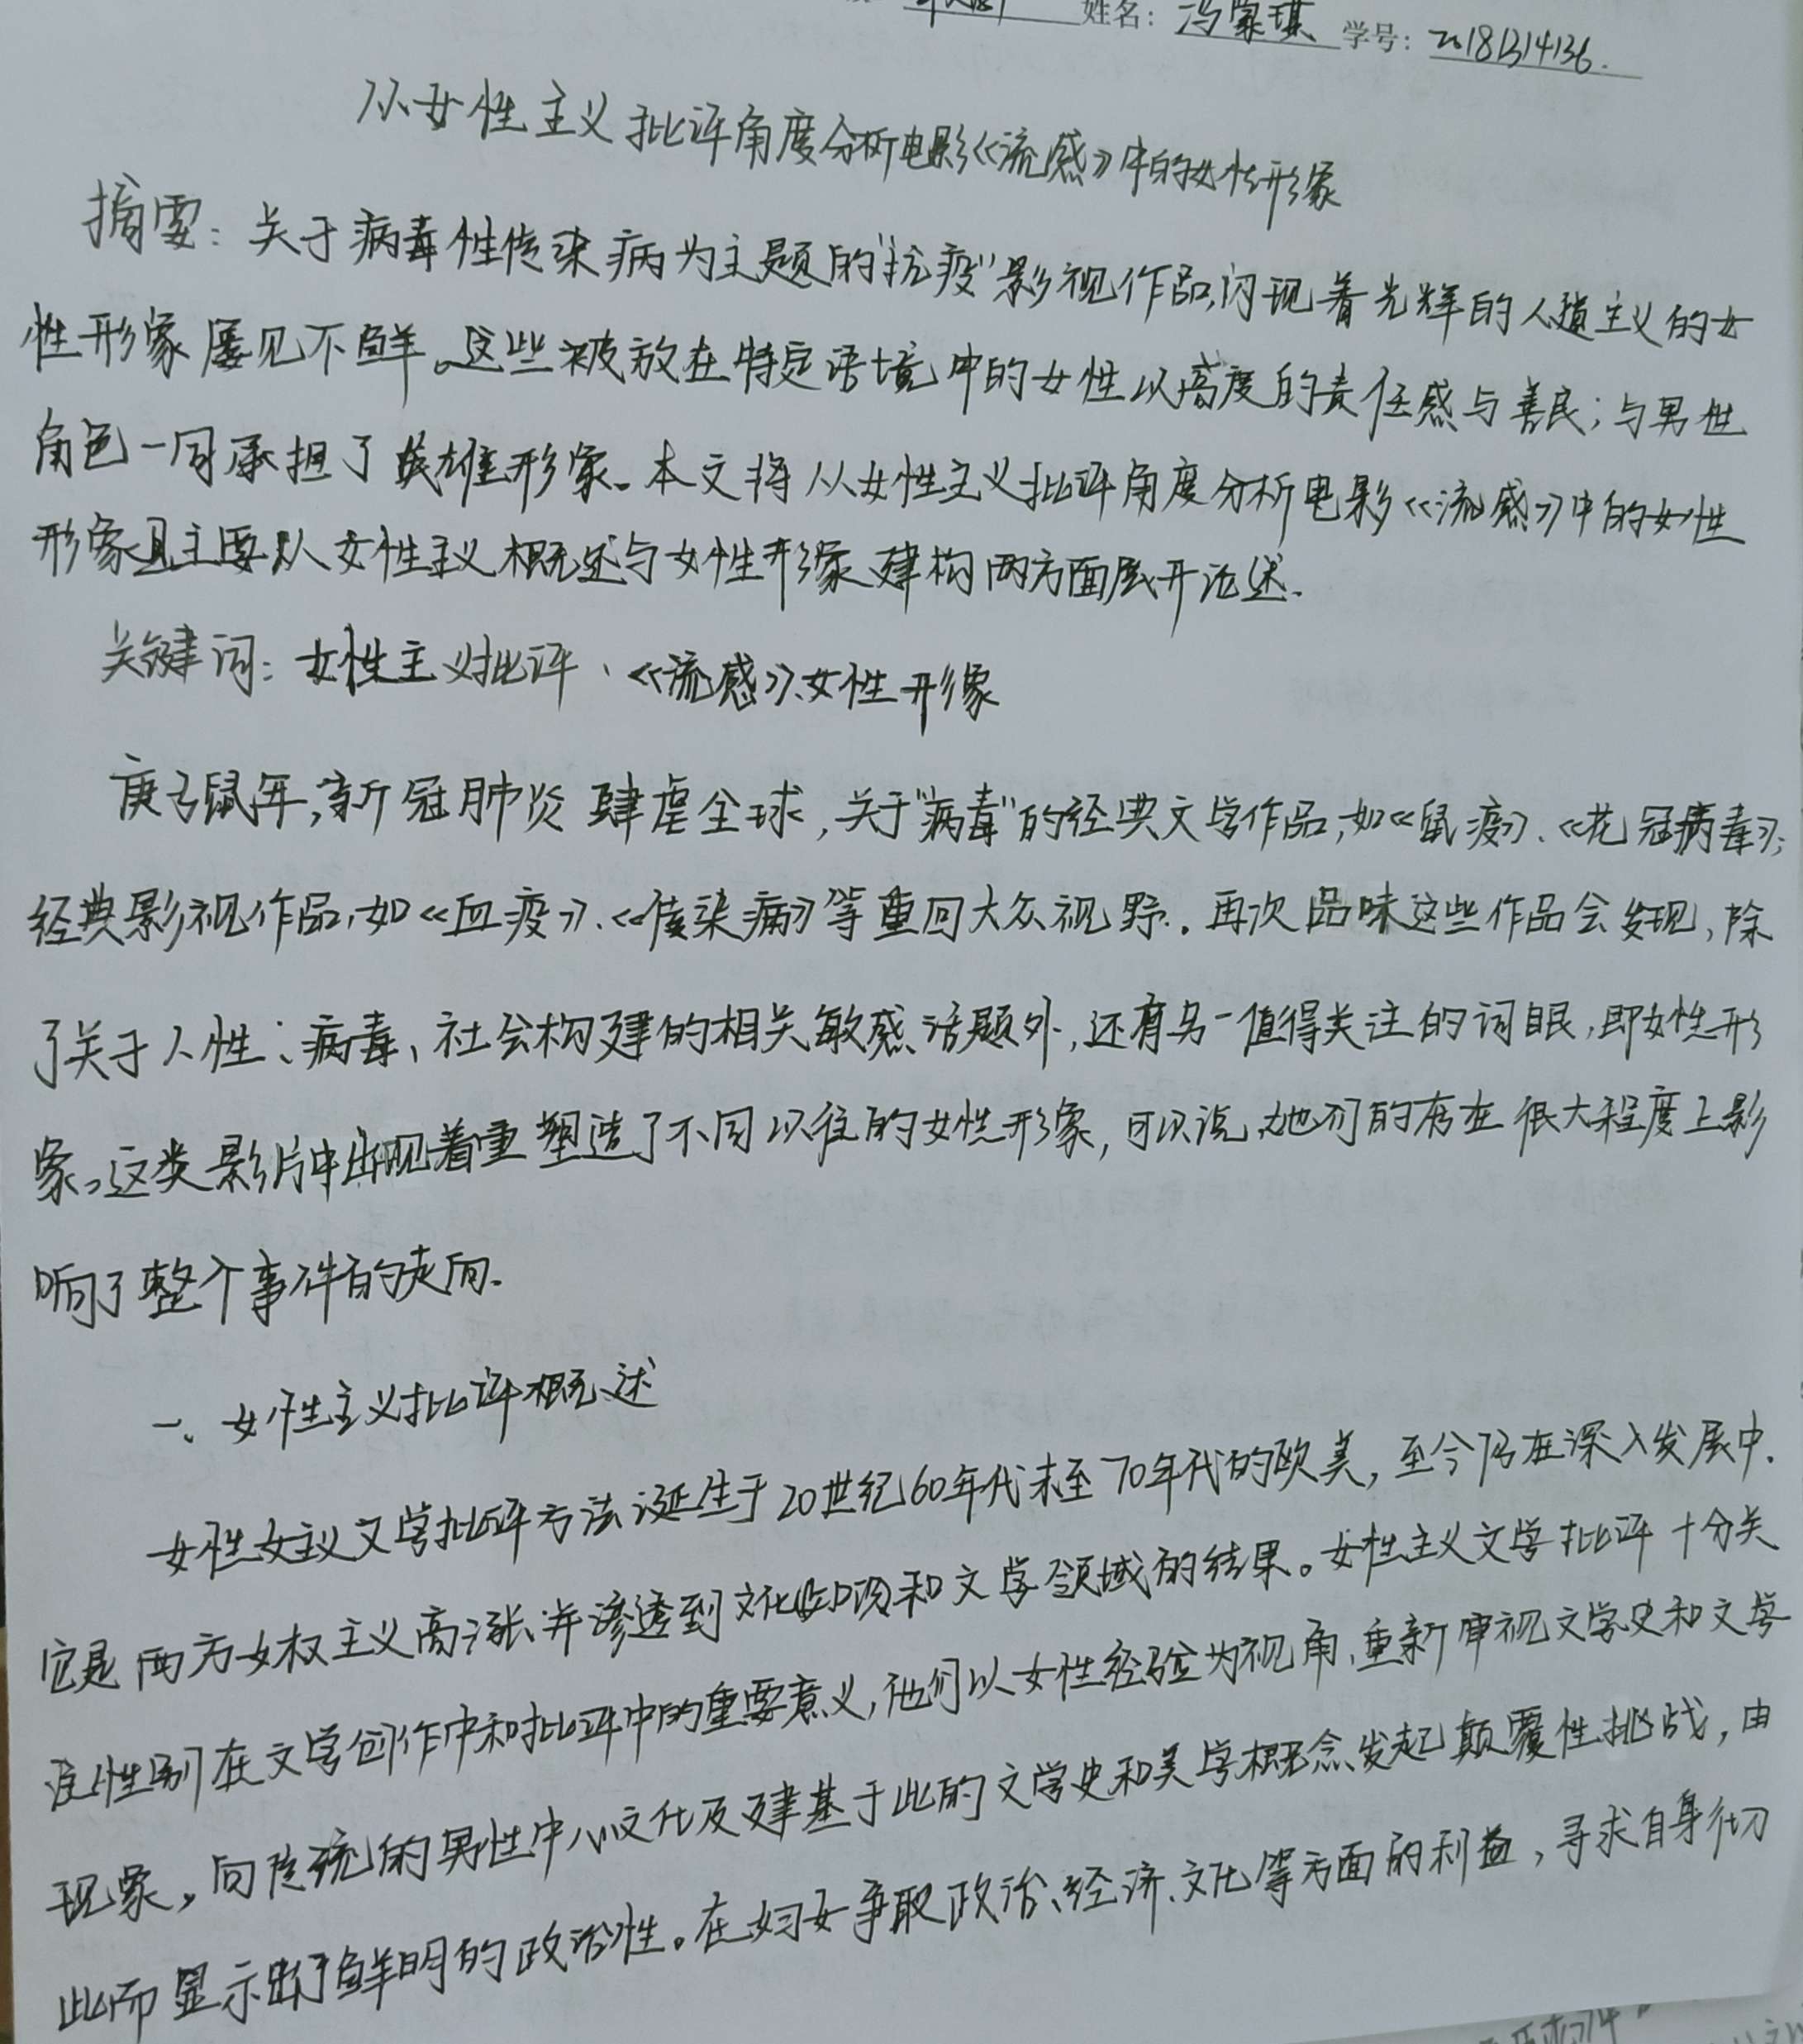 姓名：冯家琪 学号：20181314136.
从女性主义批评角度分析电影《流感》中的女性形象
摘要：关于病毒性传染病为主题的"抗疫"影视作品,闪现着光辉的人道主义的女
性形象屡见不鲜。这些被放在特定语境中的女性以高度的责任感与善良；与男性
角色一同承担了英雄形象。本文将从女性主义批评角度分析电影《流感》中的女性
形象且主要从女性主义概述与女性形象建构两方面展开论述.
关键词：女性主义批评、《流感》、女性形象
庚子鼠年,新冠肺炎肆虐全球,关于"病毒"的经典文学作品,如《鼠疫》、《花冠病毒》;
经典影视作品,如《血疫》、《传染病》等重回大众视野.再次品味这些作品会发现,除
了关于人性、病毒、社会构建的相关敏感话题外,还有另一值得关注的词眼,即女性形
象。这类影片中出现着重塑造了不同以往的女性形象,可以说,她们的存在很大程度上影
响了整个事件的走向.
一、女性主义批评概述
女性女主义文学批评方法诞生于20世纪60年代末至70年代的欧美,至今仍在深入发展中.
它是西方女权主义高涨并渗透到文化和文学领域的结果。女性主义文学批评十分关
注性别在文学创作中和批评中的重要意义,他们以女性经验为视角,重新审视文学史和文学
现象,向传统的男性中心文化及建基于此的文学史和美学概念发起颠覆性挑战,由
此而显示出了鲜明的政治性。在妇女争取政治、经济、文化等方面的利益,寻求自身彻